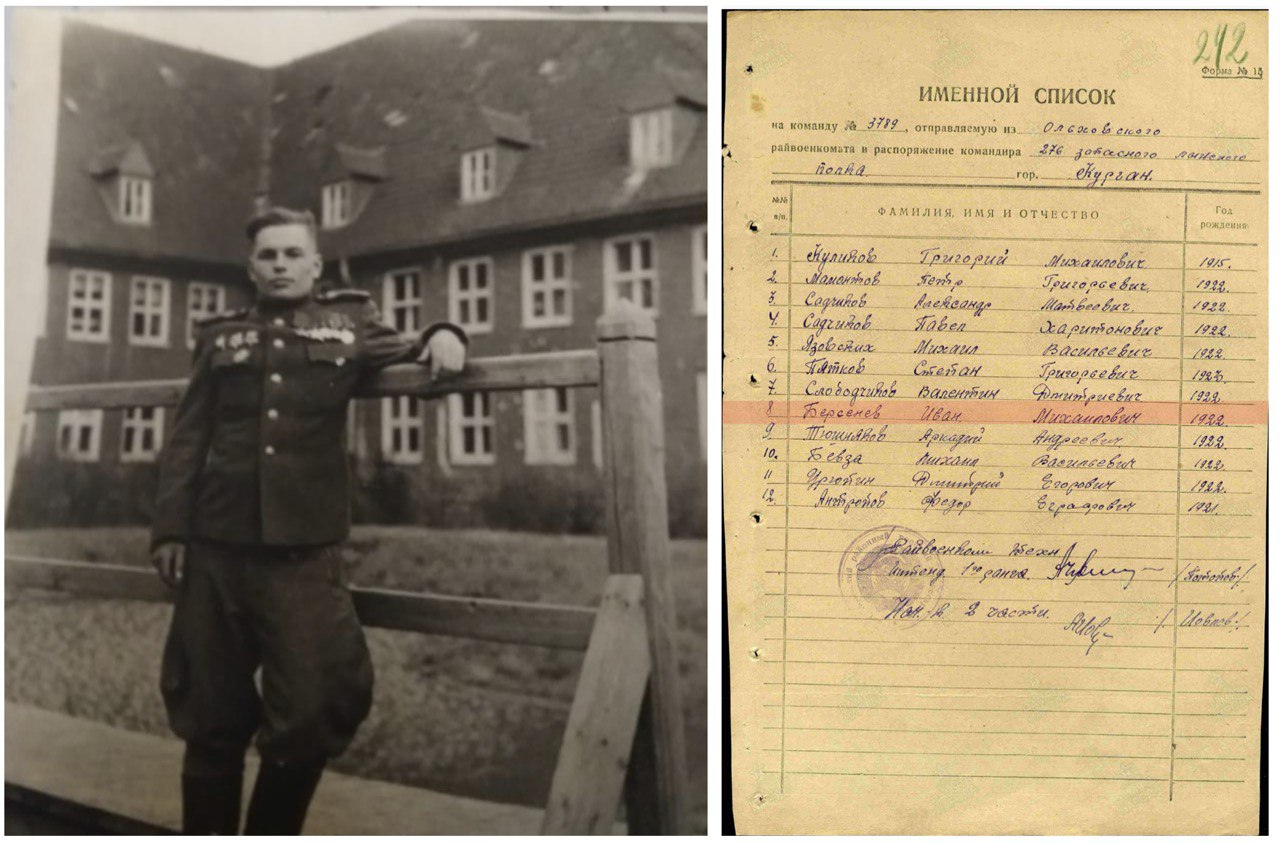 242
Форма № 13
ИМЕННОЙ СПИСОК
на команду № 3789, отправляемую из Ольховского
райвоенкомата в распоряжение командира 276 запасного лыжного
полка гор. Курган.
№№ п/п. ФАМИЛИЯ, ИМЯ И ОТЧЕСТВО Год рождения
1. Куликов Григорий Михайлович 1915.
2. Мамонтов Петр Григорьевич 1922.
3. Садчиков Александр Матвеевич 1922.
4. Садчиков Павел Харитонович 1922
5. Язовских Михаил Васильевич 1922
6. Пятков Степан Григорьевич
7. Слободчиков Валентин Дмитриевич 1922
8 Берсенев Иван Михайлович 1922
9. Тюшняков Аркадий Андреевич 1922.
10. Бевза Михаил Васильевич 1922.
11 Урюпин Дмитрий Егорович 1922.
12. Антропов Федор Евграфович 1921.
Райвоенком техн
интенд. 1го ранга
Нач. 2 части.